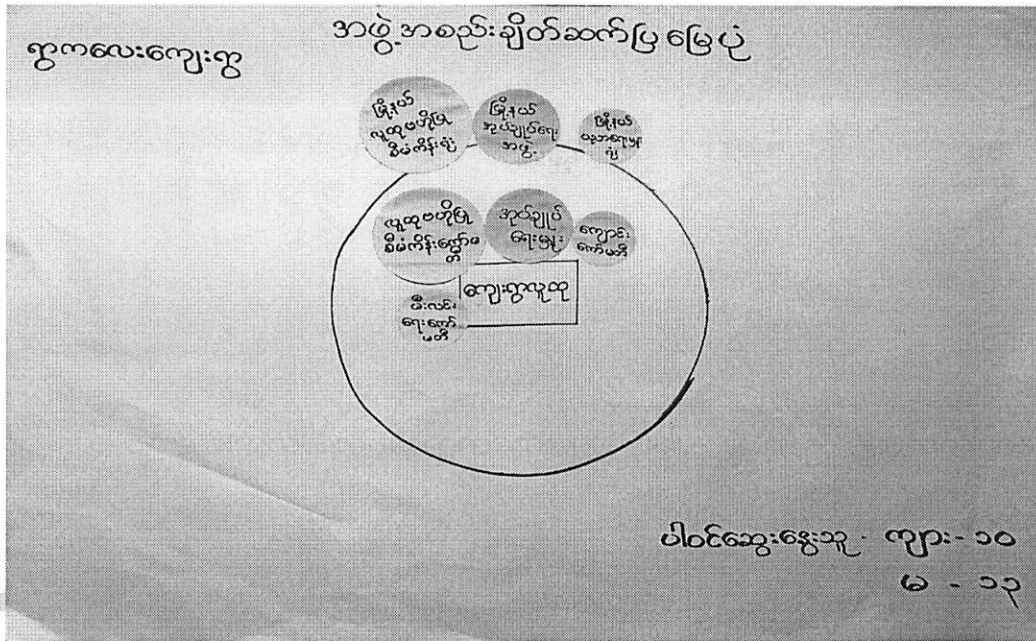 ရွာကလေးကျေးရွာ
အဖွဲ့အစည်းချိတ်ဆက်ပြမြေပုံ
မြို့နယ်
လူထုဗဟိုပြု
စီမံကိန်းရုံး
မြို့နယ်
အုပ်ချုပ်ရေး
အဖွဲ့
မြို့နယ်
ပညာရေးမှူး
ရုံး
လူထုဗဟိုပြု
စီမံကိန်းကော်မတီ
အုပ်ချုပ်
ရေးမှူး
ကျောင်း
ကော်မတီ
ကျေးရွာလူထု
မီးလင်း
ရေးကော်
မတီ
ပါဝင်ဆွေးနွေးသူ - ကျား - ၁၀
မ - ၁၃